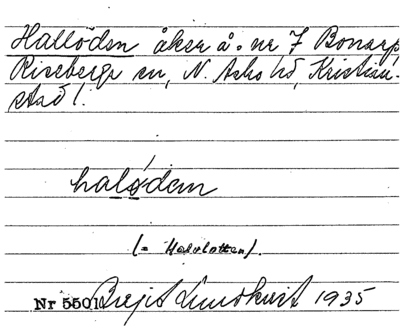 Hallöden åker å nr 7 Bonarp
Riseberga sn, N. Åsbo hd, Kristian-
stad l.
halødem
(= Halvlotten).
Nr 5501 Brejit Lundkvist 1935